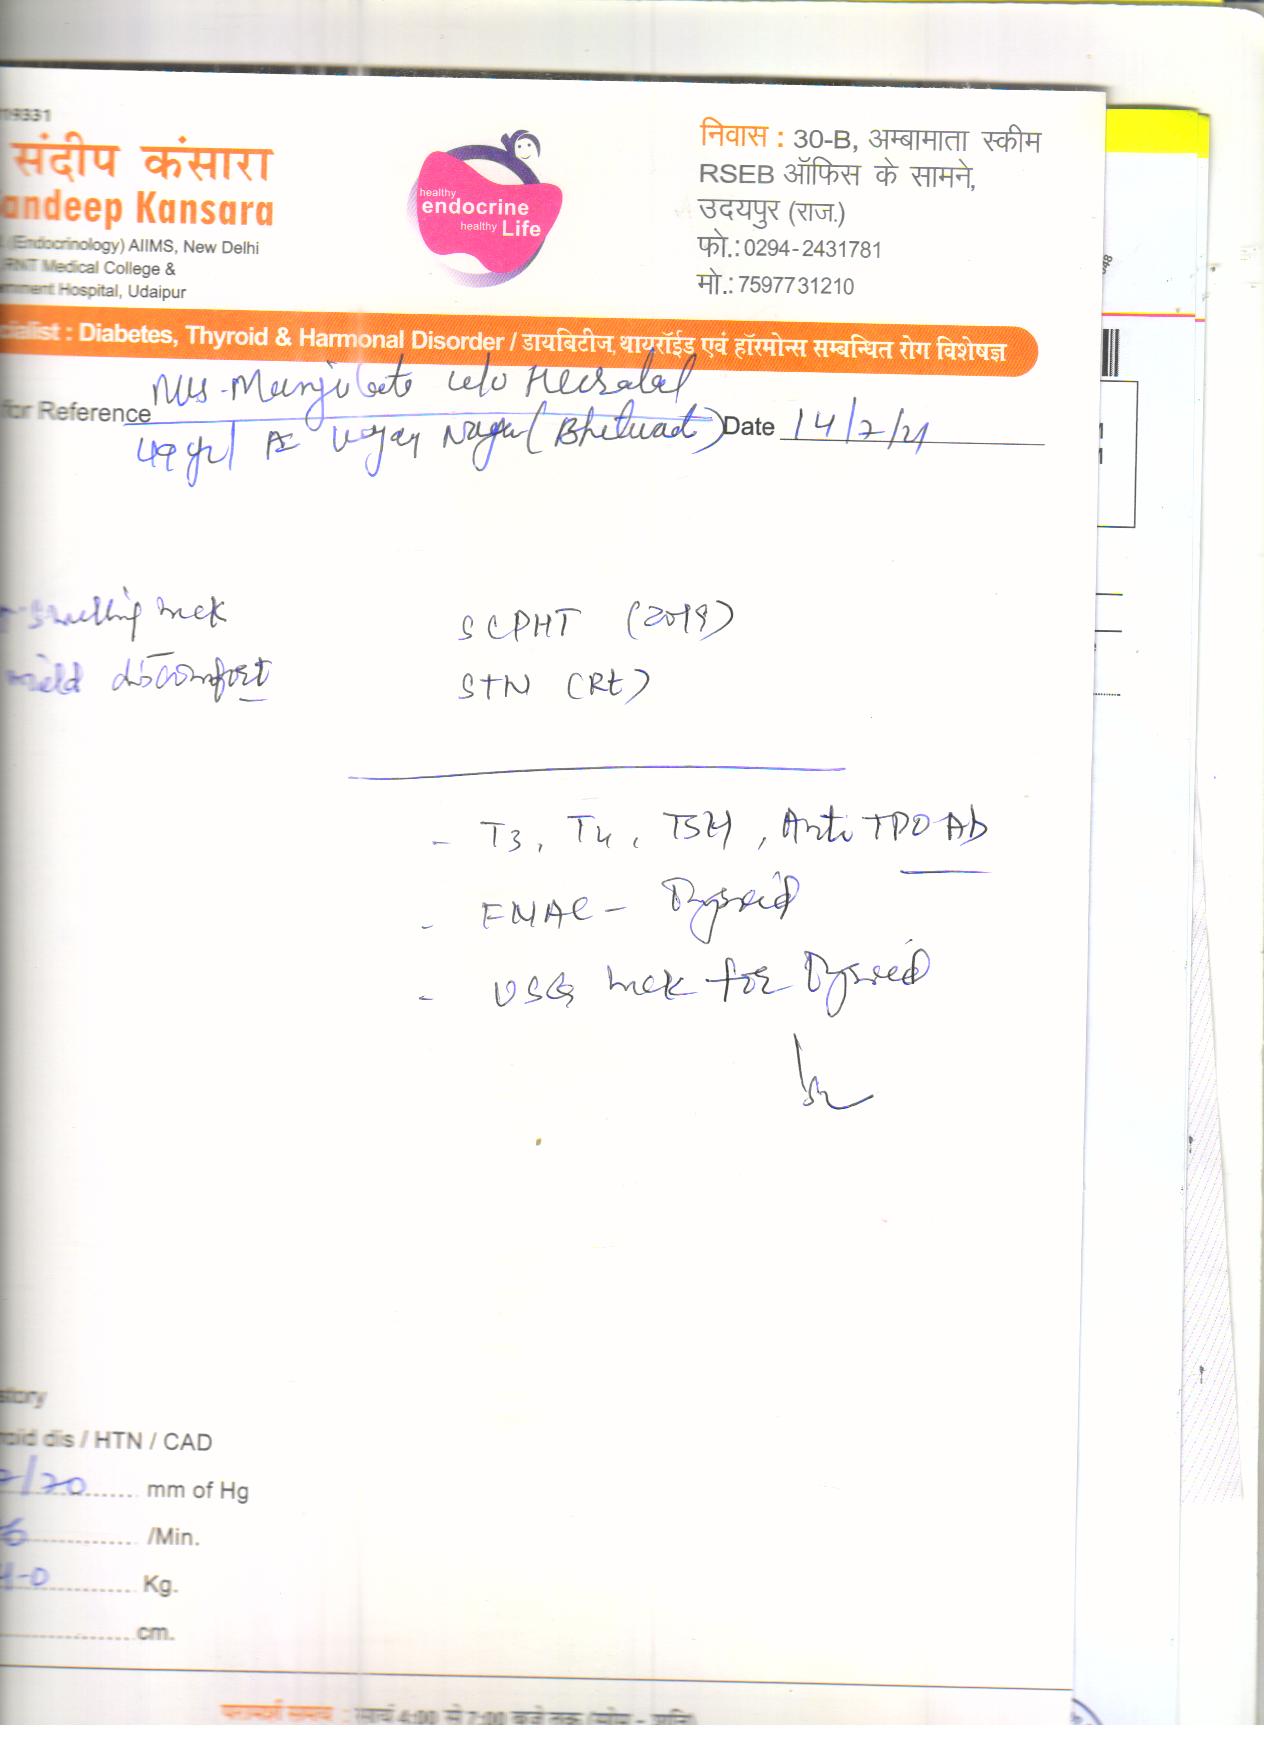 19331
संदीप कंसारा
andeep Kansara
(Endocrinology) AIIMS, New Delhi
RNT Medical College &
ernment Hospital, Udaipur
healthy
endocrine
healthy Life
निवास : 30-B, अम्बामाता स्कीम
RSEB ऑफिस के सामने,
उदयपुर (राज.)
फो.: 0294-2431781
मो.: 7597731210
cialist : Diabetes, Thyroid & Harmonal Disorder / डायबिटीज, थायरॉईड एवं हॉरमोन्स सम्बन्धित रोग विशेषज्ञ
w/o
for Reference
Date 14/2/21
49 yr/ Nagar
swelling neck
mild discomfort
SCPHT (2019)
STN (Rt)
- T3, T4, TSH, Anti TPO Ab
- FNAC - Thyroid
- USG neck for Thyroid
story
roid dis / HTN / CAD
/70 mm of Hg
6 /Min.
Kg.
cm.
परामर्श समय : सायं 4:00 से 7:00 बजे तक (सोम - शनि)